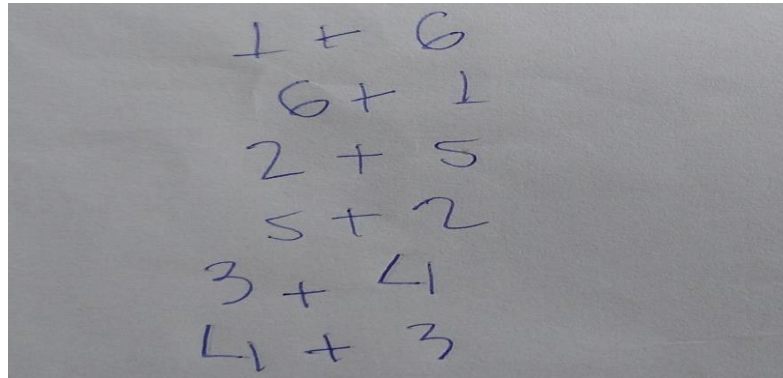 1 + 6
6 + 1
2 + 5
5 + 2
3 + 4
4 + 3